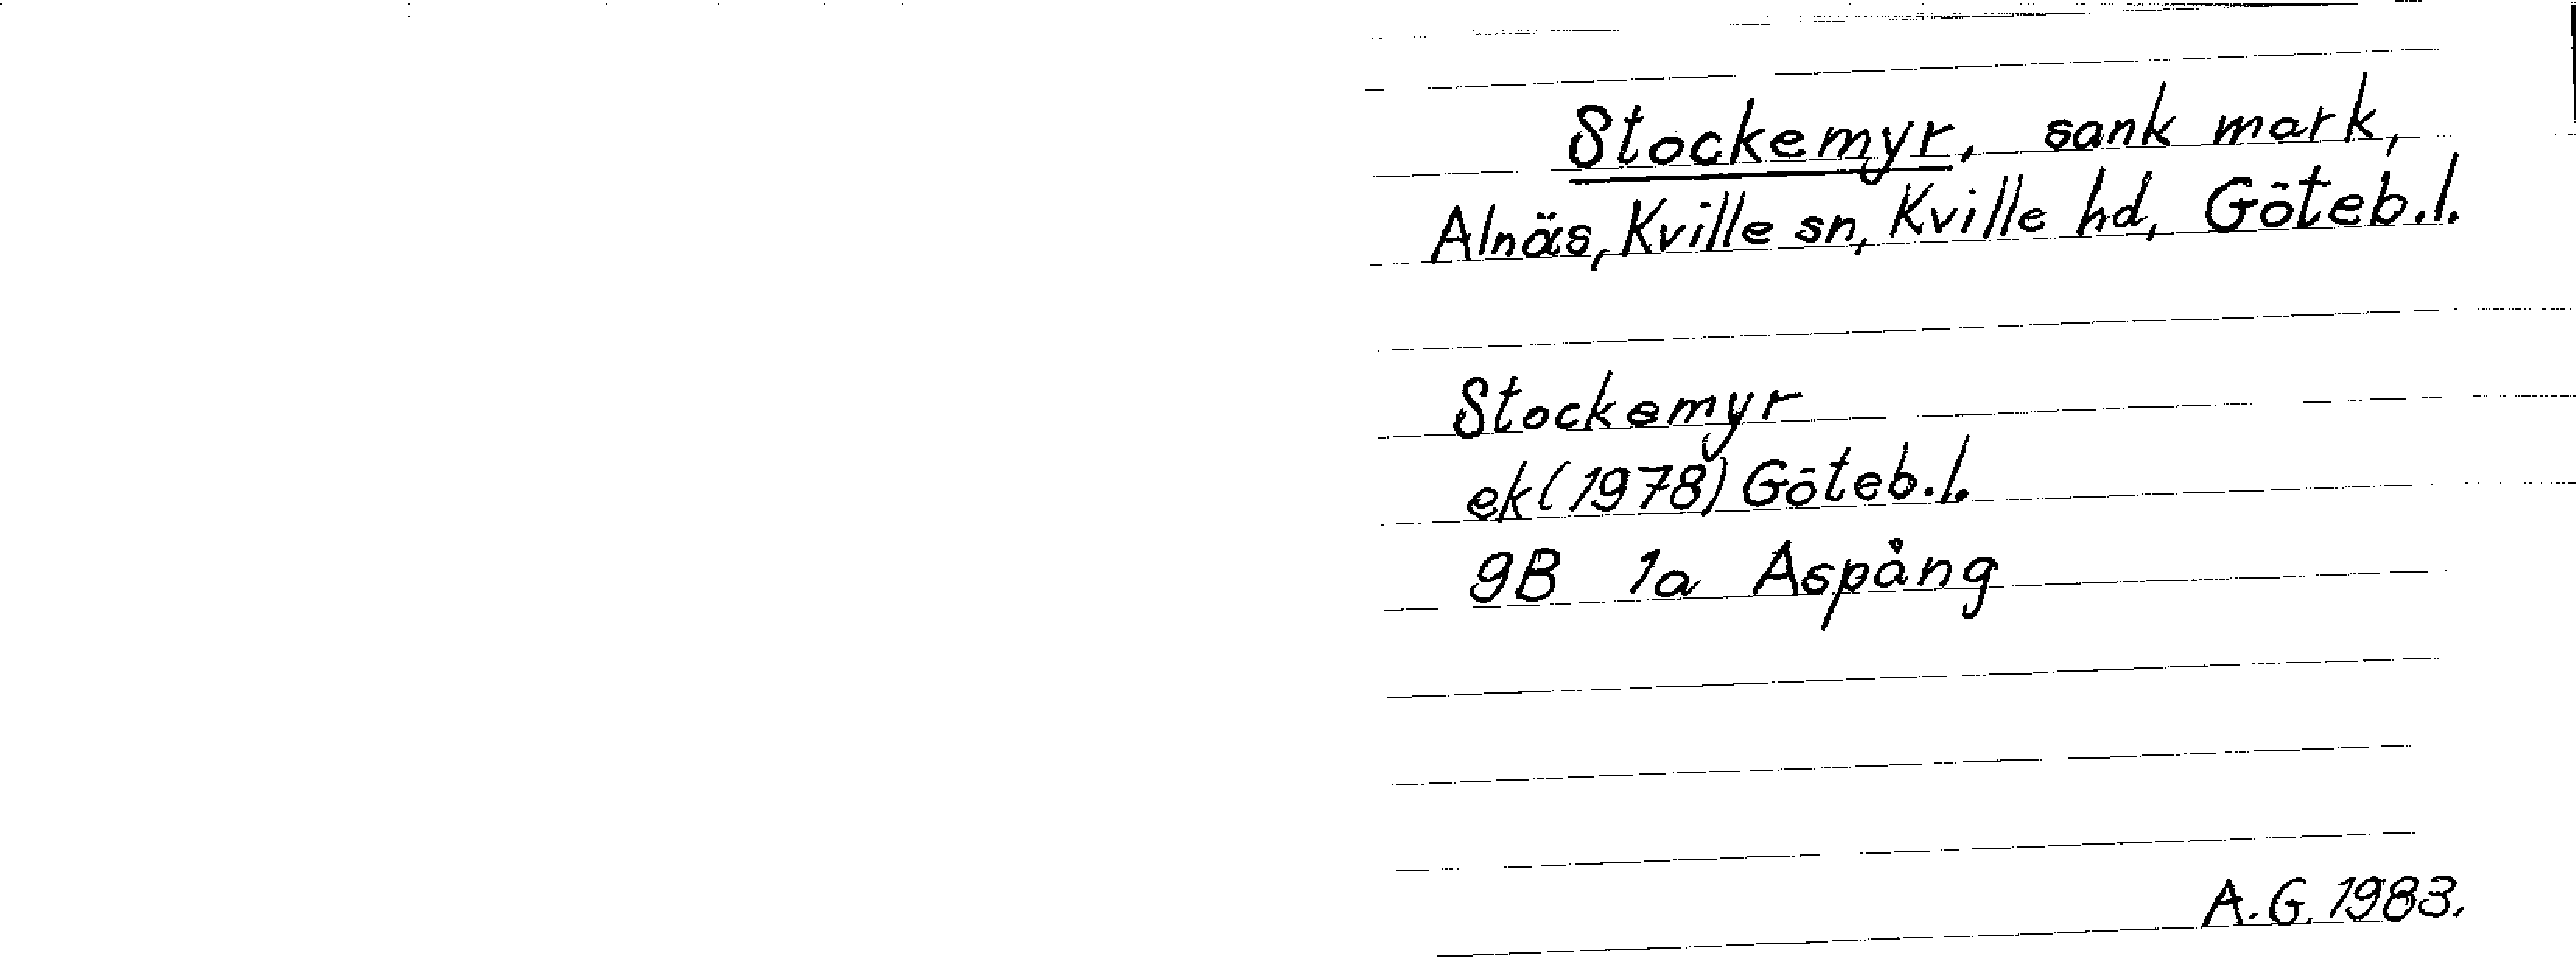 Stockemyr, sank mark,
Alnäs, Kville sn, Kville hd, Göteb.l.
Stockemyr
ek (1978) Göteb.l.
9B 1a Aspång
A.G. 1983.